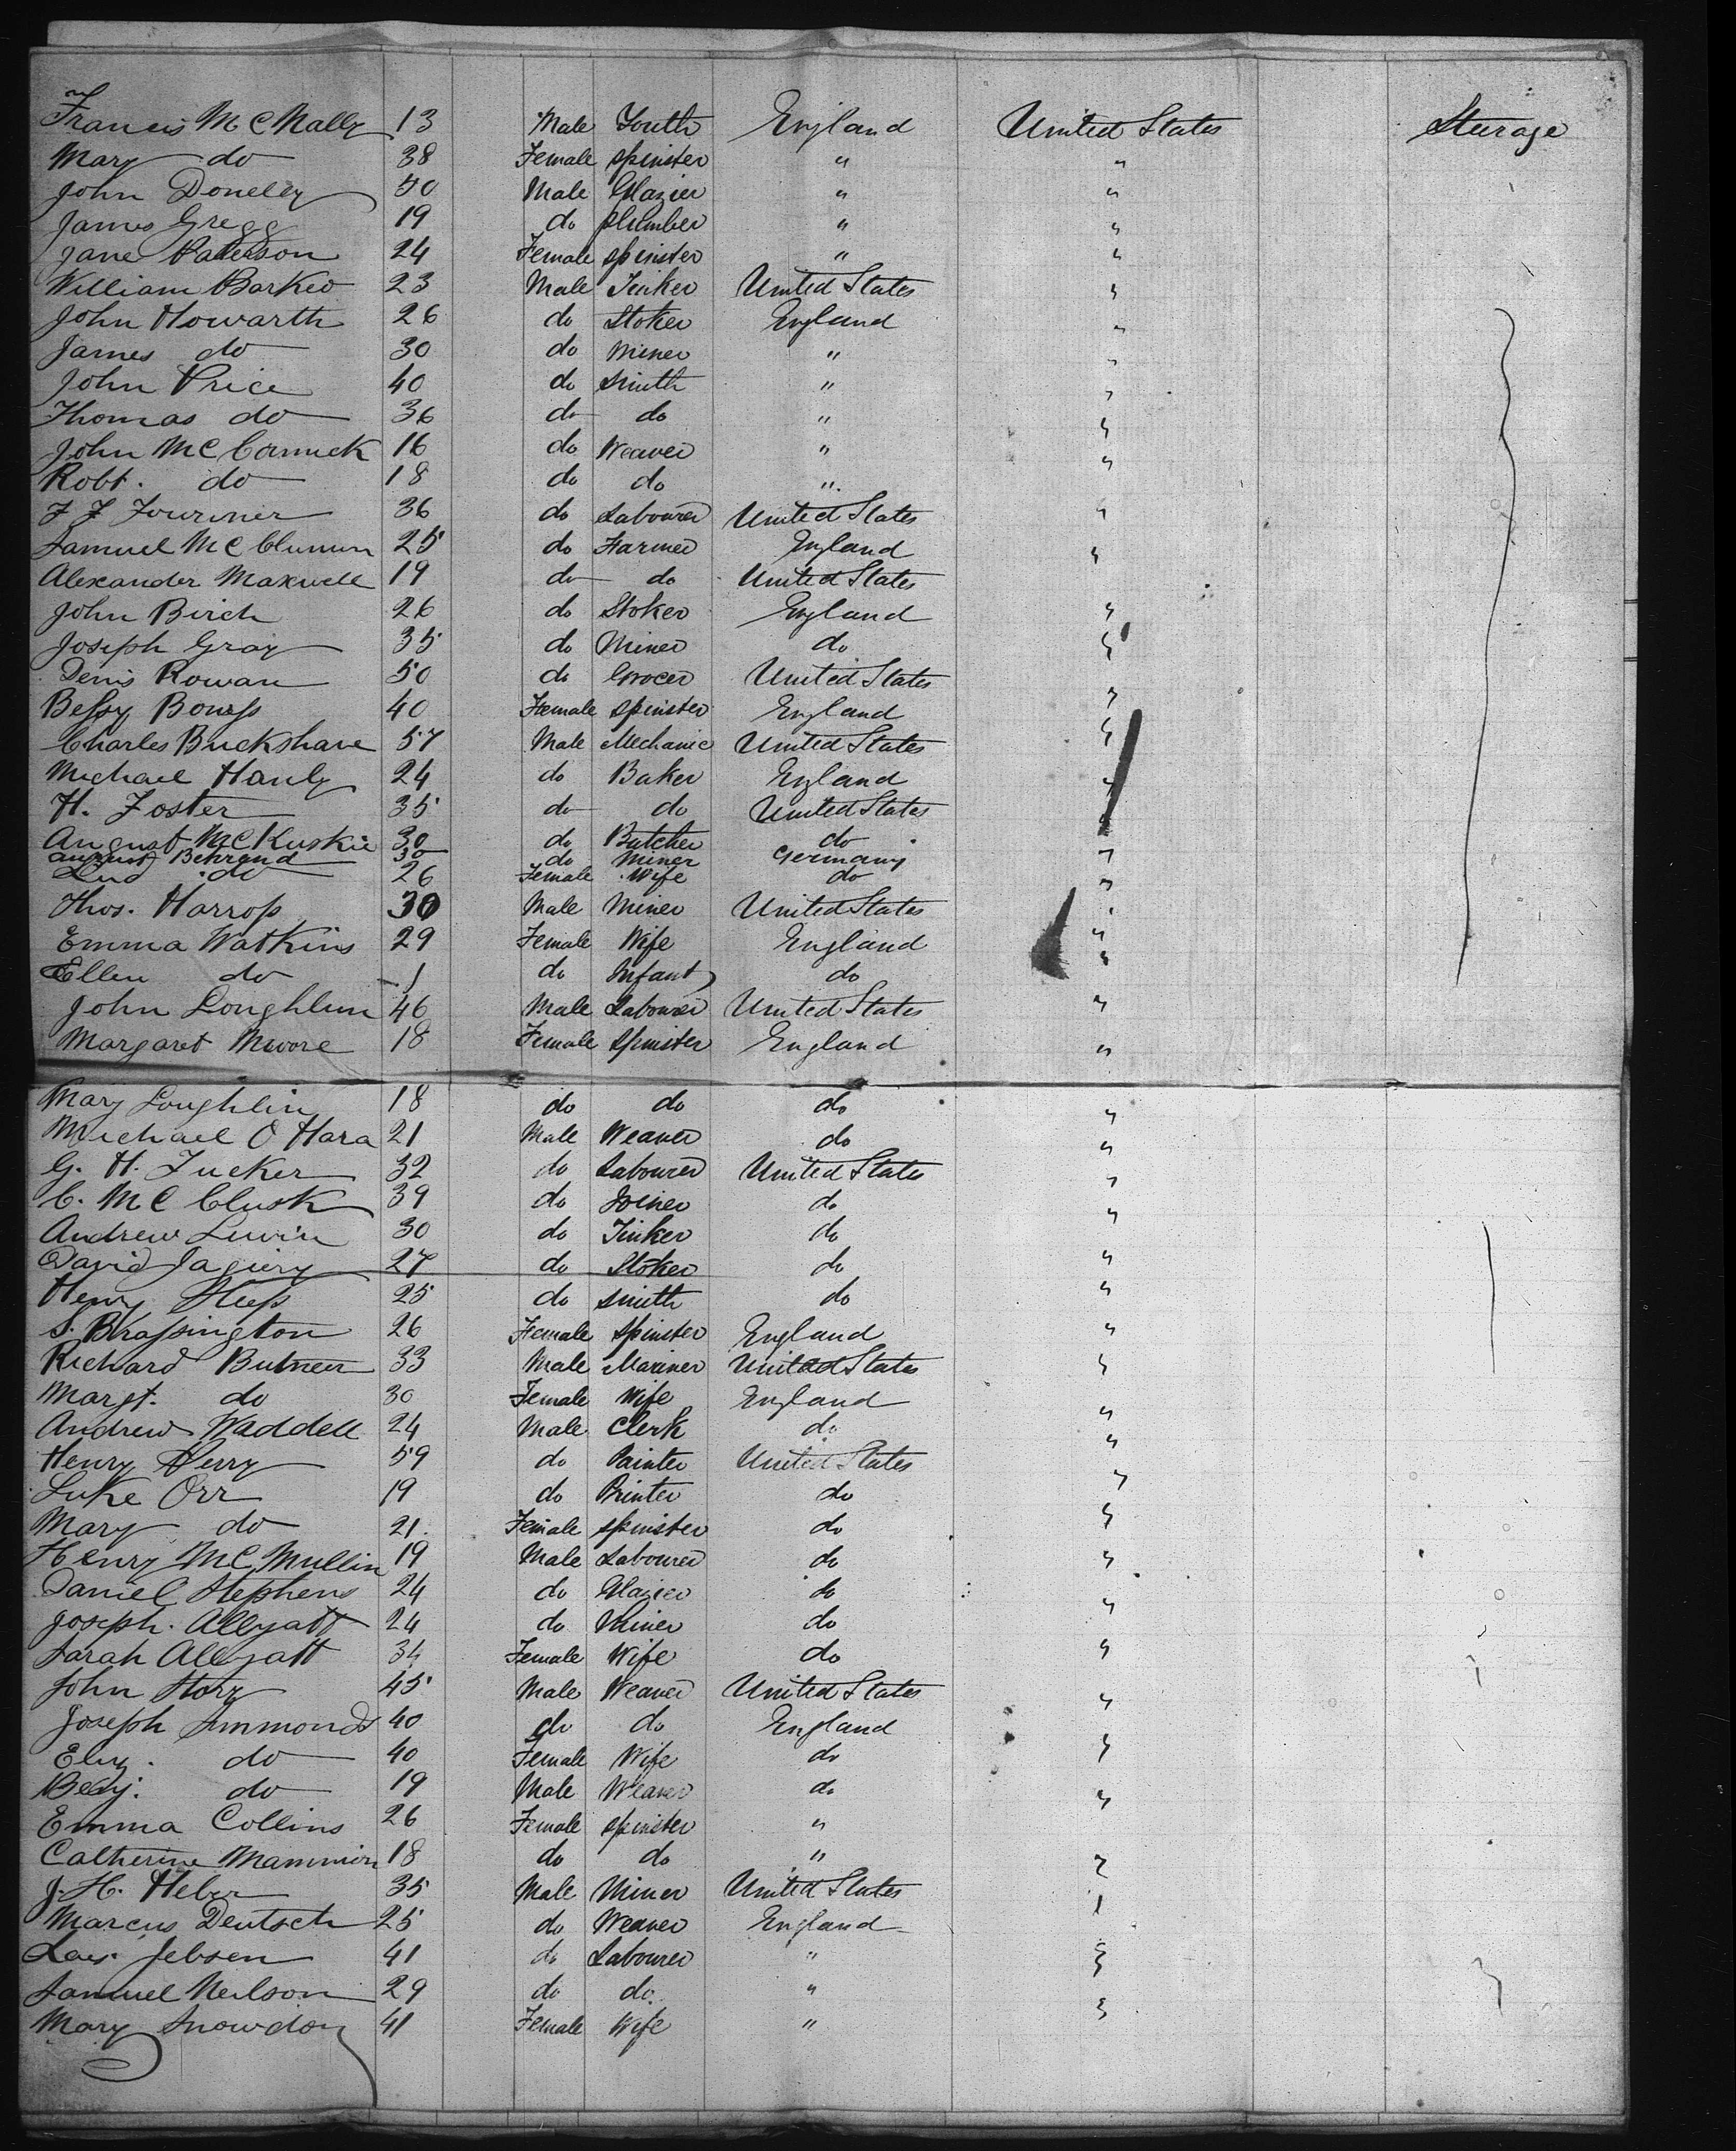 Francis McNally 13 Male Youth England United States Steerage
Mary do 38 Female Spinster " "
John Doneley 50 Male Glazier " "
James Gregg 19 do Plumber " "
Jane Paterson 24 Female Spinster " "
William Barker 23 Male Tinker United States "
John Howarth 26 do Stoker England "
James do 30 do Miner " "
John Price 40 do Smith " "
Thomas do 36 do do " "
John McCormick 16 do Weaver " "
Robt. do 18 do do " "
36 do Labourer United States "
Samuel 25 do Farmer England "
Alexander Maxwell 19 do do United States
John Birch 26 do Stoker England "
Joseph Gray 35 do Miner do "
Denis Rowan 50 do Grocer United States
Bessy 40 Female Spinster England "
Charles Buckshave 57 Male Mechanic United States "
Michael Hanly 24 do Baker England "
H. Foster 35 do do United States "
August McKuskie 30 do Butcher do "
August Behrend 30 do Miner Germany
do 26 Female Wife do "
Thos. Harrop 30 Male Miner United States "
Emma Watkins 29 Female Wife England "
Ellen do 1 do Infant do "
John Loughlin 46 Male Labourer United States "
Margaret Moore 18 Female Spinster England "
Mary Loughlin 18 do do do "
Michael O Hara 21 Male Weaver do "
G. H. Tucker 32 do Labourer United States "
C. McClusk 39 do Joiner do "
Andrew Lewin 30 do Tinker do
David 27 do Stoker do "
Henry 25 do Smith do "
S. Brassington 26 Female Spinster England "
Richard 33 Male Mariner United States "
Margt. do 30 Female Wife England "
Andrew Waddell 24 Male Clerk do "
Henry Perry 59 do Painter United States
Luke Orr 19 do Printer do "
Mary do 21 Female Spinster do "
Henry McMullin 19 Male Labourer do "
Daniel Stephens 24 do Glazier do "
Joseph Allyatt 24 do Miner do
Sarah Allyatt 34 Female Wife do "
John Story 45 Male Weaver United States "
Joseph Simmonds 40 do do England "
Eliz. do 40 Female Wife do "
Benj. do 19 Male Weaver do "
Emma Collins 26 Female Spinster "
Catherine Mammion 18 do do " "
J. H. Heber 35 Male Miner United States "
Marcus Deutsch 25 do Weaver England
Jebsen 41 do Labourer " "
Samuel Neilson 29 do do " "
Mary Snowdon 41 Female Wife "